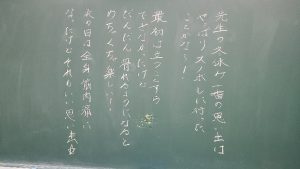 先生の冬休み一番の思い出は
やっぱりスノボしに行った
ことかな〜!
最初は立つことすら
できなかったけど
だんだん滑れるようになると
めちゃくちゃ楽しい!
次の日は全身筋肉痛に
なったけどそれもいい思い出☆